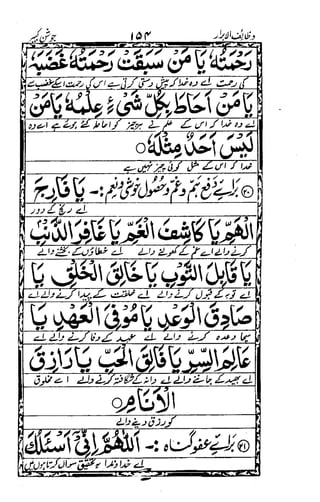 وظائف الابرار ۱۵۴ جوشن کبیر
رَحْمَتُهٗ يَا مَنْ سَبَقَتْ رَحْمَتُهٗ غَضَبَهٗ
يَا مَنْ اَحَاطَ بِكُلِّ شَیْءٍ عِلْمُهٗ يَا مَنْ
اے وہ خدا کہ اس کے علم نے ہر چیز کو احاطہ کئے ہوئے ہے اے وہ
لَيْسَ اَحَدٌ مِثْلَهٗ ○
خدا کہ اس کے مثل کوئی چیز نہیں ہے
(۲۰) برائے دفع ہم و غم و حصول خوشی و نعیم :- يَا فَارِجَ
اے رنج کے دور
الْهَمِّ يَا كَاشِفَ الْغَمِّ يَا غَافِرَ الذَّنْبِ
کرنے والے اے غم کے کھولنے والے اے خطاؤں کے بخشنے والے
يَا قَابِلَ التَّوْبِ يَا خَالِقَ الْخَلْقِ يَا
اے توبہ کے قبول کرنے والے اے خلقت کے پیدا کرنے والے اے
صَادِقَ الْوَعْدِ يَا مُوْفِیَ الْعَهْدِ يَا
سچا وعدہ کرنے والے اے عہد کے وفا کرنے والے اے
عَالِمَ السِّرِّ يَا فَالِقَ الْحَبِّ يَا رَازِقَ
بھید کے جاننے والے اے دانہ کے شگافتہ کرنے والے اے مخلوق
الْاَنَامِ ○
کو رزق دینے والے
(۲۱) برائے عفو گناہ :- اَللّٰهُمَّ اِنِّیْ اَسْئَلُكَ
اے خدا وندا بہ تحقیق سوال کرتا ہوں میں